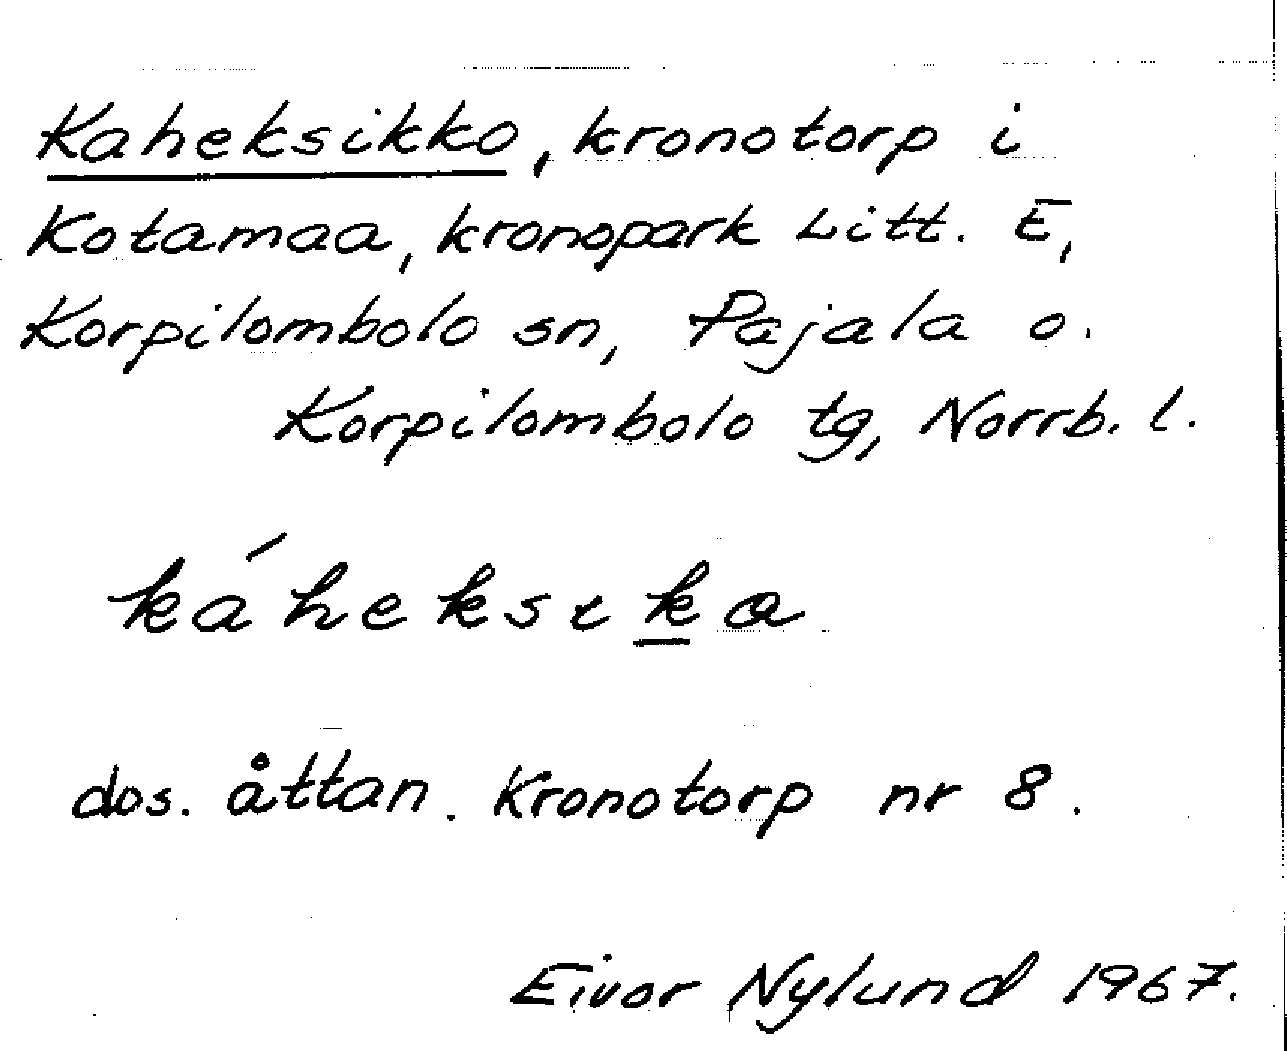 Kaheksikko, kronotorp i
Kotamaa, kronopark Litt. E,
Korpilombolo sn, Pajala o.
Korpilombolo tg, Norrb. l.
káheksıḵɑ
dvs. åttan. Kronotorp nr 8.
Eivor Nylund 1967.